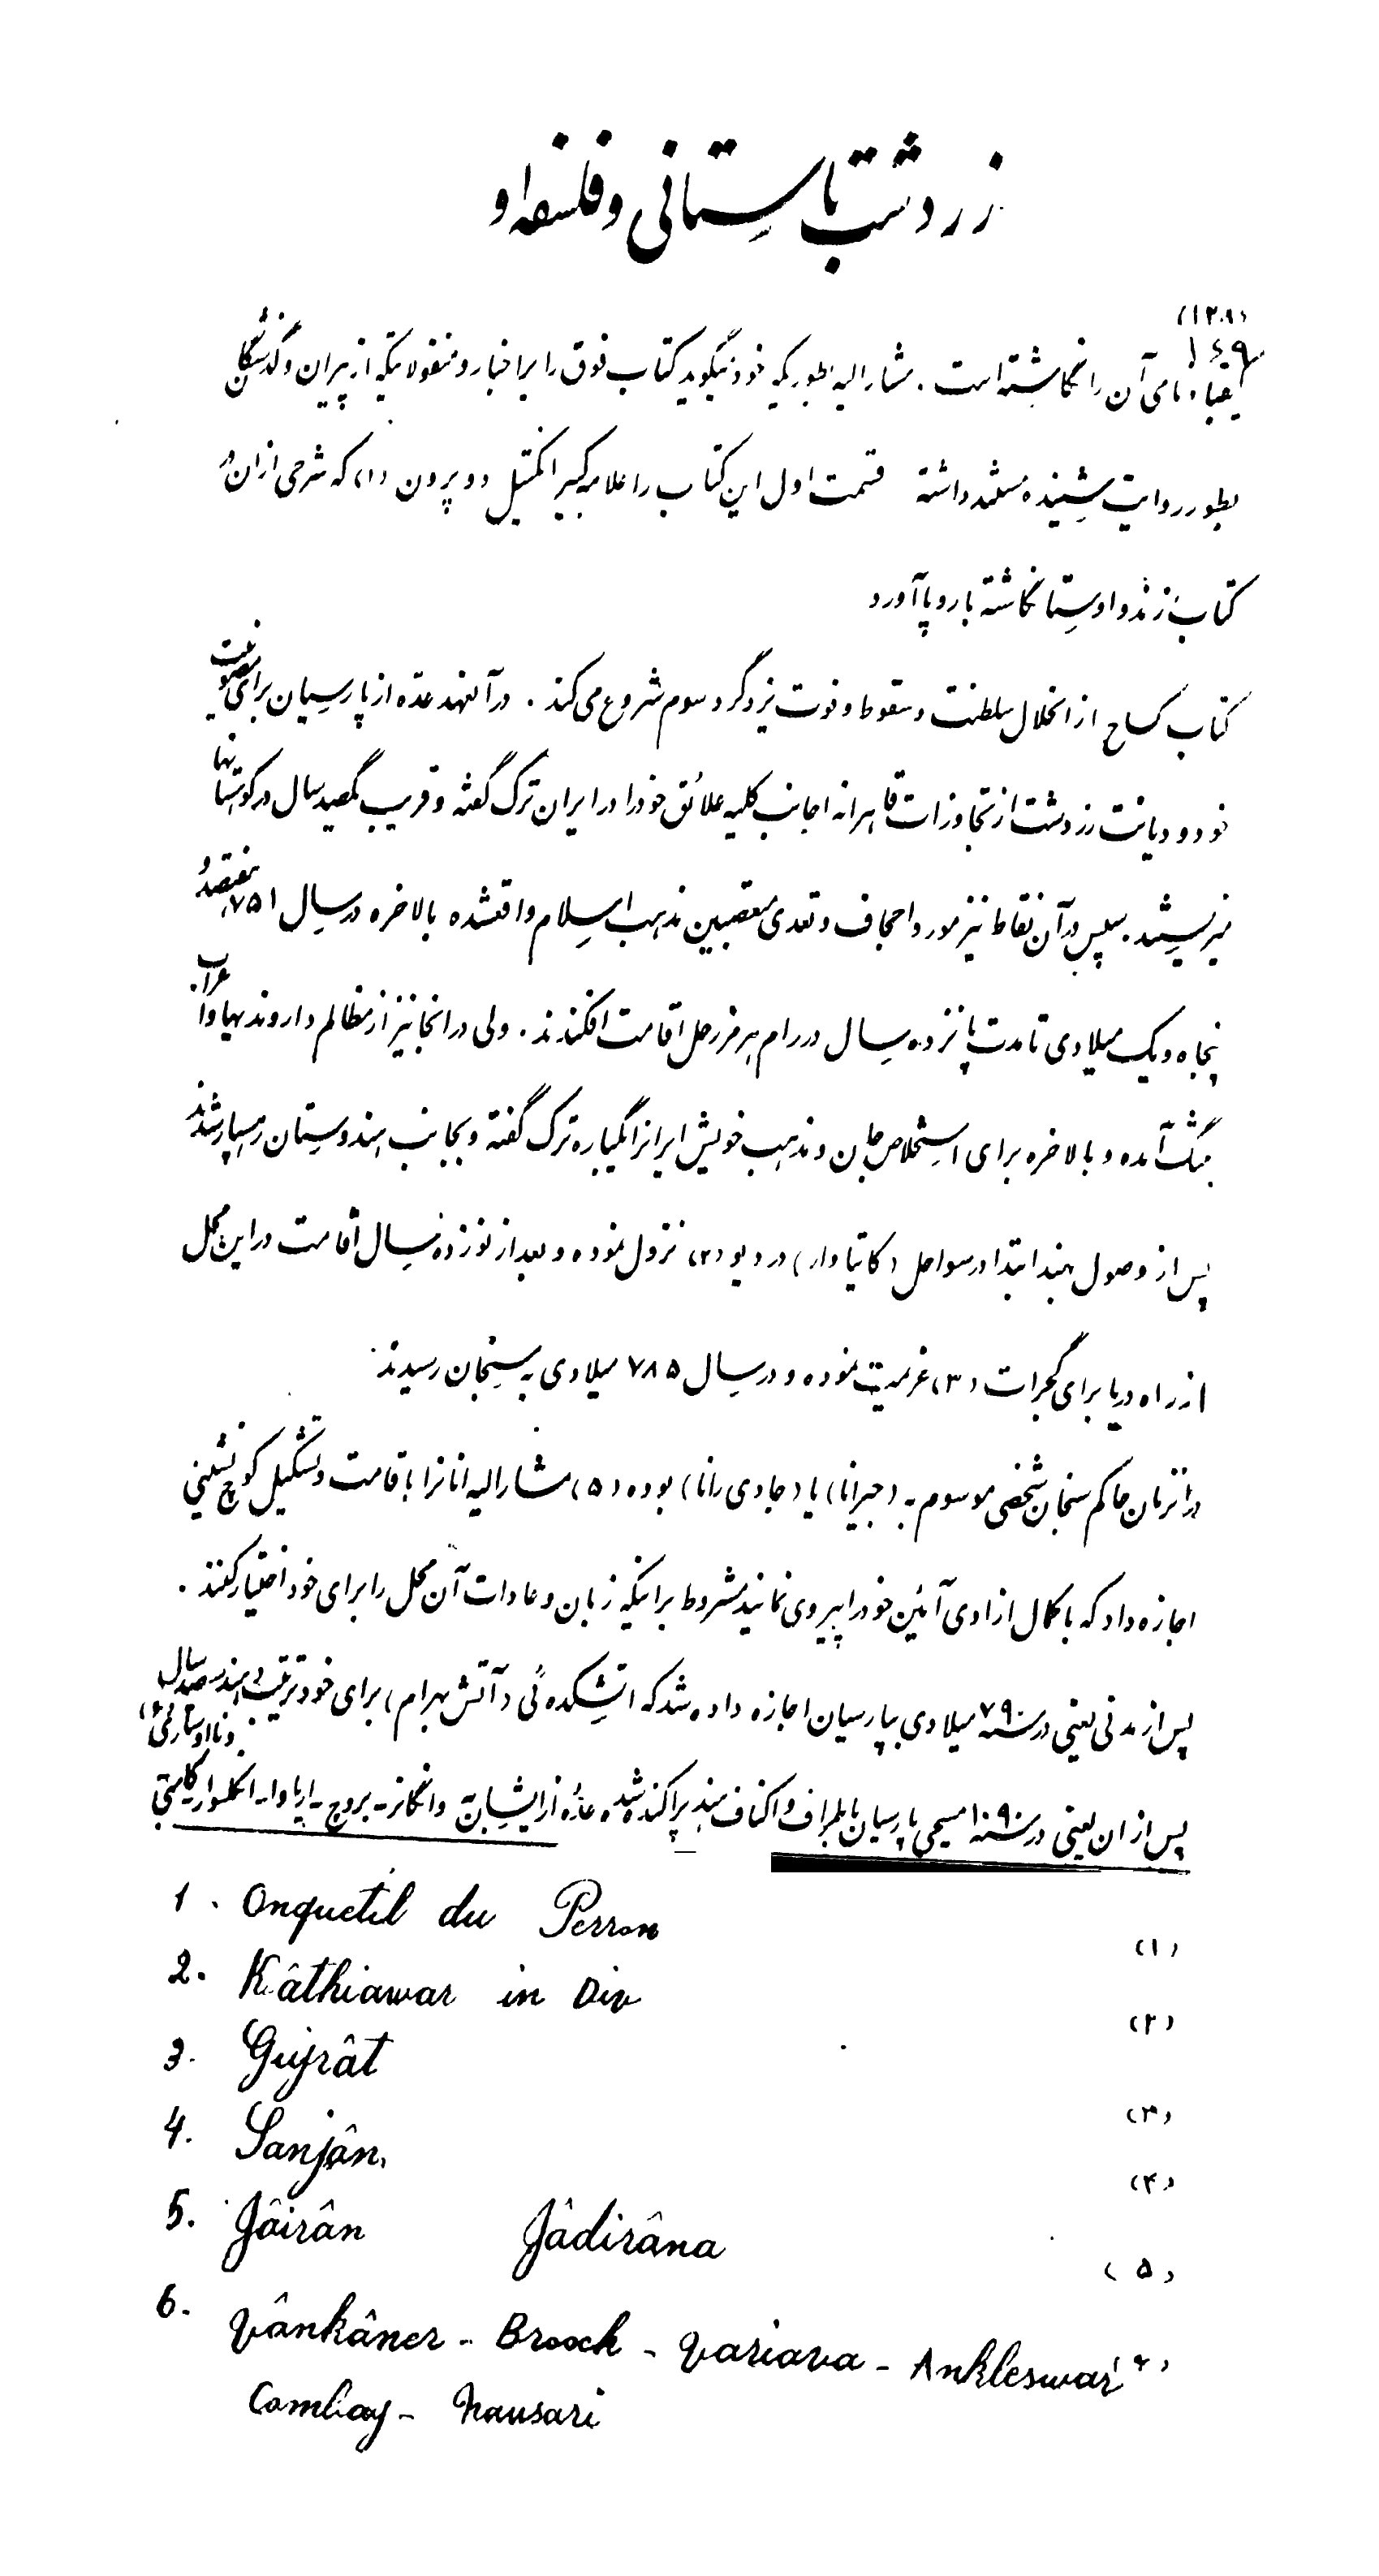 زردشت باستانی و فلسفه او
(۱۲۰۹)
۱۶۹
کیقباد نامی آن را نگاشته است. مشارالیه بطوریکه خود میگوید کتاب فوق را بر اخبار و منقولاتیکه از پیران و گذشتگان
بطور روایت شنیده مستند داشته قسمت اول این کتاب را علامه کبیر انکتیل دو پرون (۱) که شرحی از ان در
کتاب زند و اوستا نگاشته باروپا آورد
کتاب از انحلال سلطنت و سقوط و فوت یزدگرد سوم شروع می کند. در آنعهد عده از پارسیان برای مصونیت
خود و دیانت زردشت از تجاوزات قاهرانه اجانب کلیه علائق خود را در ایران ترک گفته و قریب یکصد سال در کوهستانها
میزیستند. سپس در آن نقاط نیز مورد اجحاف و تعدی متعصبین مذهب اسلام واقعشده بالاخره در سال ۷۵۱ هفتصد و
پنجاه و یک میلادی تا مدت پانزده سال در رام هرمز رحل اقامت افکندند. ولی در انجا نیز از مظالم داروندیهاو اعراب
بتنگ آمده و بالاخره برای استخلاص جان و مذهب خویش ایرانرا یکباره ترک گفته و بجانب هندوستان رهسپار شدند
پس از وصول بهند ابتدا در سواحل (کاتیاوار) در دیو (۲) نزول نموده و بعد از نوزده سال اقامت در این محل
از راه دریا برای گجرات (۳) عزیمت نموده و در سال ۷۸۵ میلادی به سنجان رسیدند
در انزمان حاکم سنجان شخصی موسوم به (جیرانا) یا (جادی رانا) بوده (۵) مشارالیه انانرا باقامت و تشکیل کوچ نشینی
اجازه داد که با کمال ازادی آئین خود را پیروی نمایند مشروط بر اینکه زبان و عادات آن محل را برای خود اختیار کنند.
پس از مدتی یعنی در سنه ۷۹۰ میلادی بپارسیان اجازه داده شد که اتشکده ئی (آتش بهرام) برای خود ترتیب دهند سیصد سال
پس از ان یعنی در سنه ۱۰۹۰ مسیحی پارسیان باطراف و اکناف هند پراکنده شده عده از ایشان به وانکانر - بروچ - اریاوا - انکلسوار کامبی
و نااوساری (۶)
1. Onquetil du Perron (۱)
2. Kâthiawar in Div (۲)
3. Gujrât (۳)
4. Sanjân. (۴)
5. Jâirân Jâdirâna (۵)
6. Vânkâner - Broock - Variava - Ankleswar (۶)
Combay - Nausari